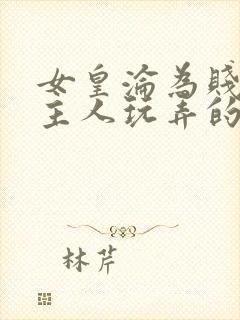 女皇淪為賤
主人玩弄的
林芹